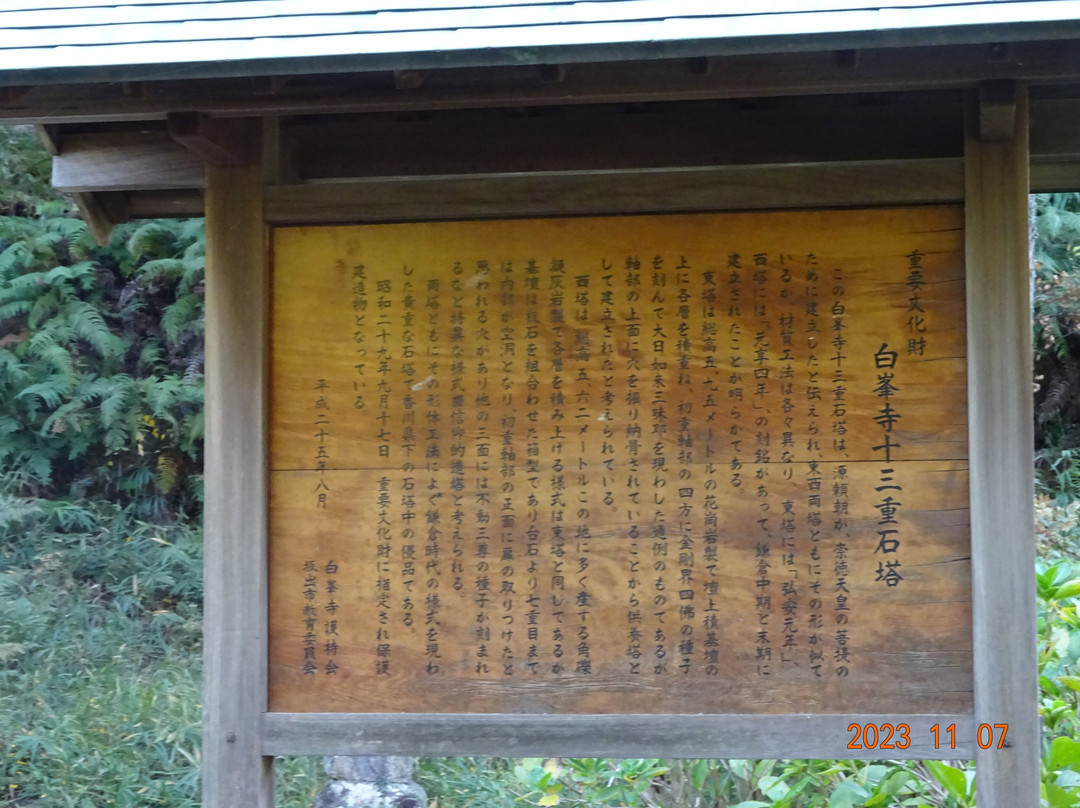 重要文化財
白峯寺十三重石塔
この白峯寺十三重石塔は、源頼朝が、崇徳天皇の菩提の
ために建立したと伝えられ、東西両塔ともにその形が似て
いるが、材質工法は各々異なり、東塔には、「弘安元年」、
西塔には、「元享四年」、の刻銘があって、鎌倉中期と末期に
建立されたことが明らかである。
東塔は総高五、九五メートルの花崗岩製で壇上積基壇の
上に各層を積重ね、初重軸部の四方に金剛界四佛の種子
を刻んで大日如来三昧耶を現わした通例のものであるが
軸部の上面に穴を掘り納骨されていることから供養塔と
して建立されたと考えられている。
西塔は、総高五、六二メートルこの地に多く産する角礫
凝灰岩製で各層を積み上げる様式は東塔と同じであるが
基壇は板石を組合わせた箱型であり台石より七重目まで
は内部が空洞となり、初重軸部の正面に扉の取りつけたと
思われる穴があり他の三面には不動三尊の種子が刻まれ
るなど特異な様式で信仰的造塔と考えられる。
両塔ともにその形体工法によく鎌倉時代の様式を現わ
した貴重な石塔で香川県下の石塔中の優品である。
昭和二十九年九月十七日 重要文化財に指定され保護
建造物となっている。
平成二十五年八月
白峯寺護持会
坂出市教育委員会
2023 11 07